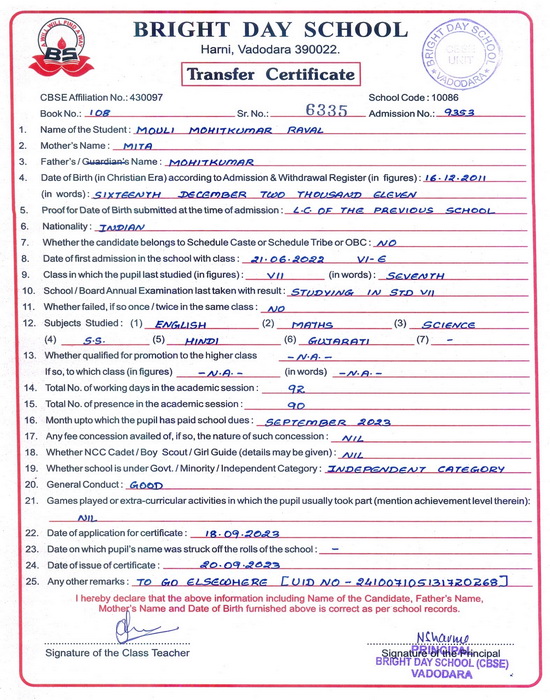 A WILL WILL FIND A WAY
BS
BRIGHT DAY SCHOOL
Harni, Vadodara 390022.
Transfer Certificate
BRIGHT DAY SCHOOL
CBSE
UNIT
VADODARA
CBSE Affiliation No.: 430097 School Code : 10086
Book No.: 108 Sr. No.: 6335 Admission No.: 9353
1. Name of the Student : MOULI MOHITKUMAR RAVAL
2. Mother's Name : MITA
3. Father's / Guardian's Name : MOHITKUMAR
4. Date of Birth (in Christian Era) according to Admission & Withdrawal Register (in figures) : 16.12.2011
(in words) : SIXTEENTH DECEMBER TWO THOUSAND ELEVEN
5. Proof for Date of Birth submitted at the time of admission : L.C OF THE PREVIOUS SCHOOL
6. Nationality : INDIAN
7. Whether the candidate belongs to Schedule Caste or Schedule Tribe or OBC : NO
8. Date of first admission in the school with class : 21.06.2022 VI-E
9. Class in which the pupil last studied (in figures) : VII (in words) : SEVENTH
10. School / Board Annual Examination last taken with result : STUDYING IN STD VII
11. Whether failed, if so once / twice in the same class : NO
12. Subjects Studied : (1) ENGLISH (2) MATHS (3) SCIENCE
(4) S.S. (5) HINDI (6) GUJARATI (7) -
13. Whether qualified for promotion to the higher class - N.A. -
If so, to which class (in figures) - N.A. - (in words) - N.A. -
14. Total No. of working days in the academic session : 92
15. Total No. of presence in the academic session : 90
16. Month upto which the pupil has paid school dues : SEPTEMBER 2023
17. Any fee concession availed of, if so, the nature of such concession : NIL
18. Whether NCC Cadet / Boy Scout / Girl Guide (details may be given) : NIL
19. Whether school is under Govt. / Minority / Independent Category : INDEPENDENT CATEGORY
20. General Conduct : GOOD
21. Games played or extra-curricular activities in which the pupil usually took part (mention achievement level therein):
NIL
22. Date of application for certificate : 18.09.2023
23. Date on which pupil's name was struck off the rolls of the school : -
24. Date of issue of certificate : 20.09.2023
25. Any other remarks : TO GO ELSEWHERE [UID NO - 241007105131720268]
I hereby declare that the above information including Name of the Candidate, Father's Name,
Mother's Name and Date of Birth furnished above is correct as per school records.
NSharma
Signature of the Class Teacher Signature of the Principal
PRINCIPAL
BRIGHT DAY SCHOOL (CBSE)
VADODARA